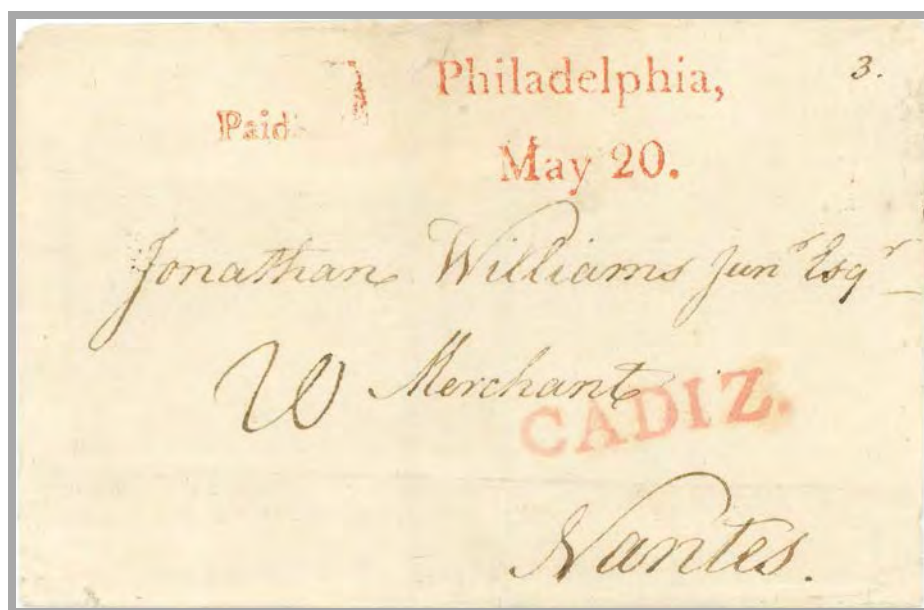 Philadelphia,
3.
Paid
May 20.
Jonathan Williams Junr Esqr
Merchant
CADIZ.
Nantes.